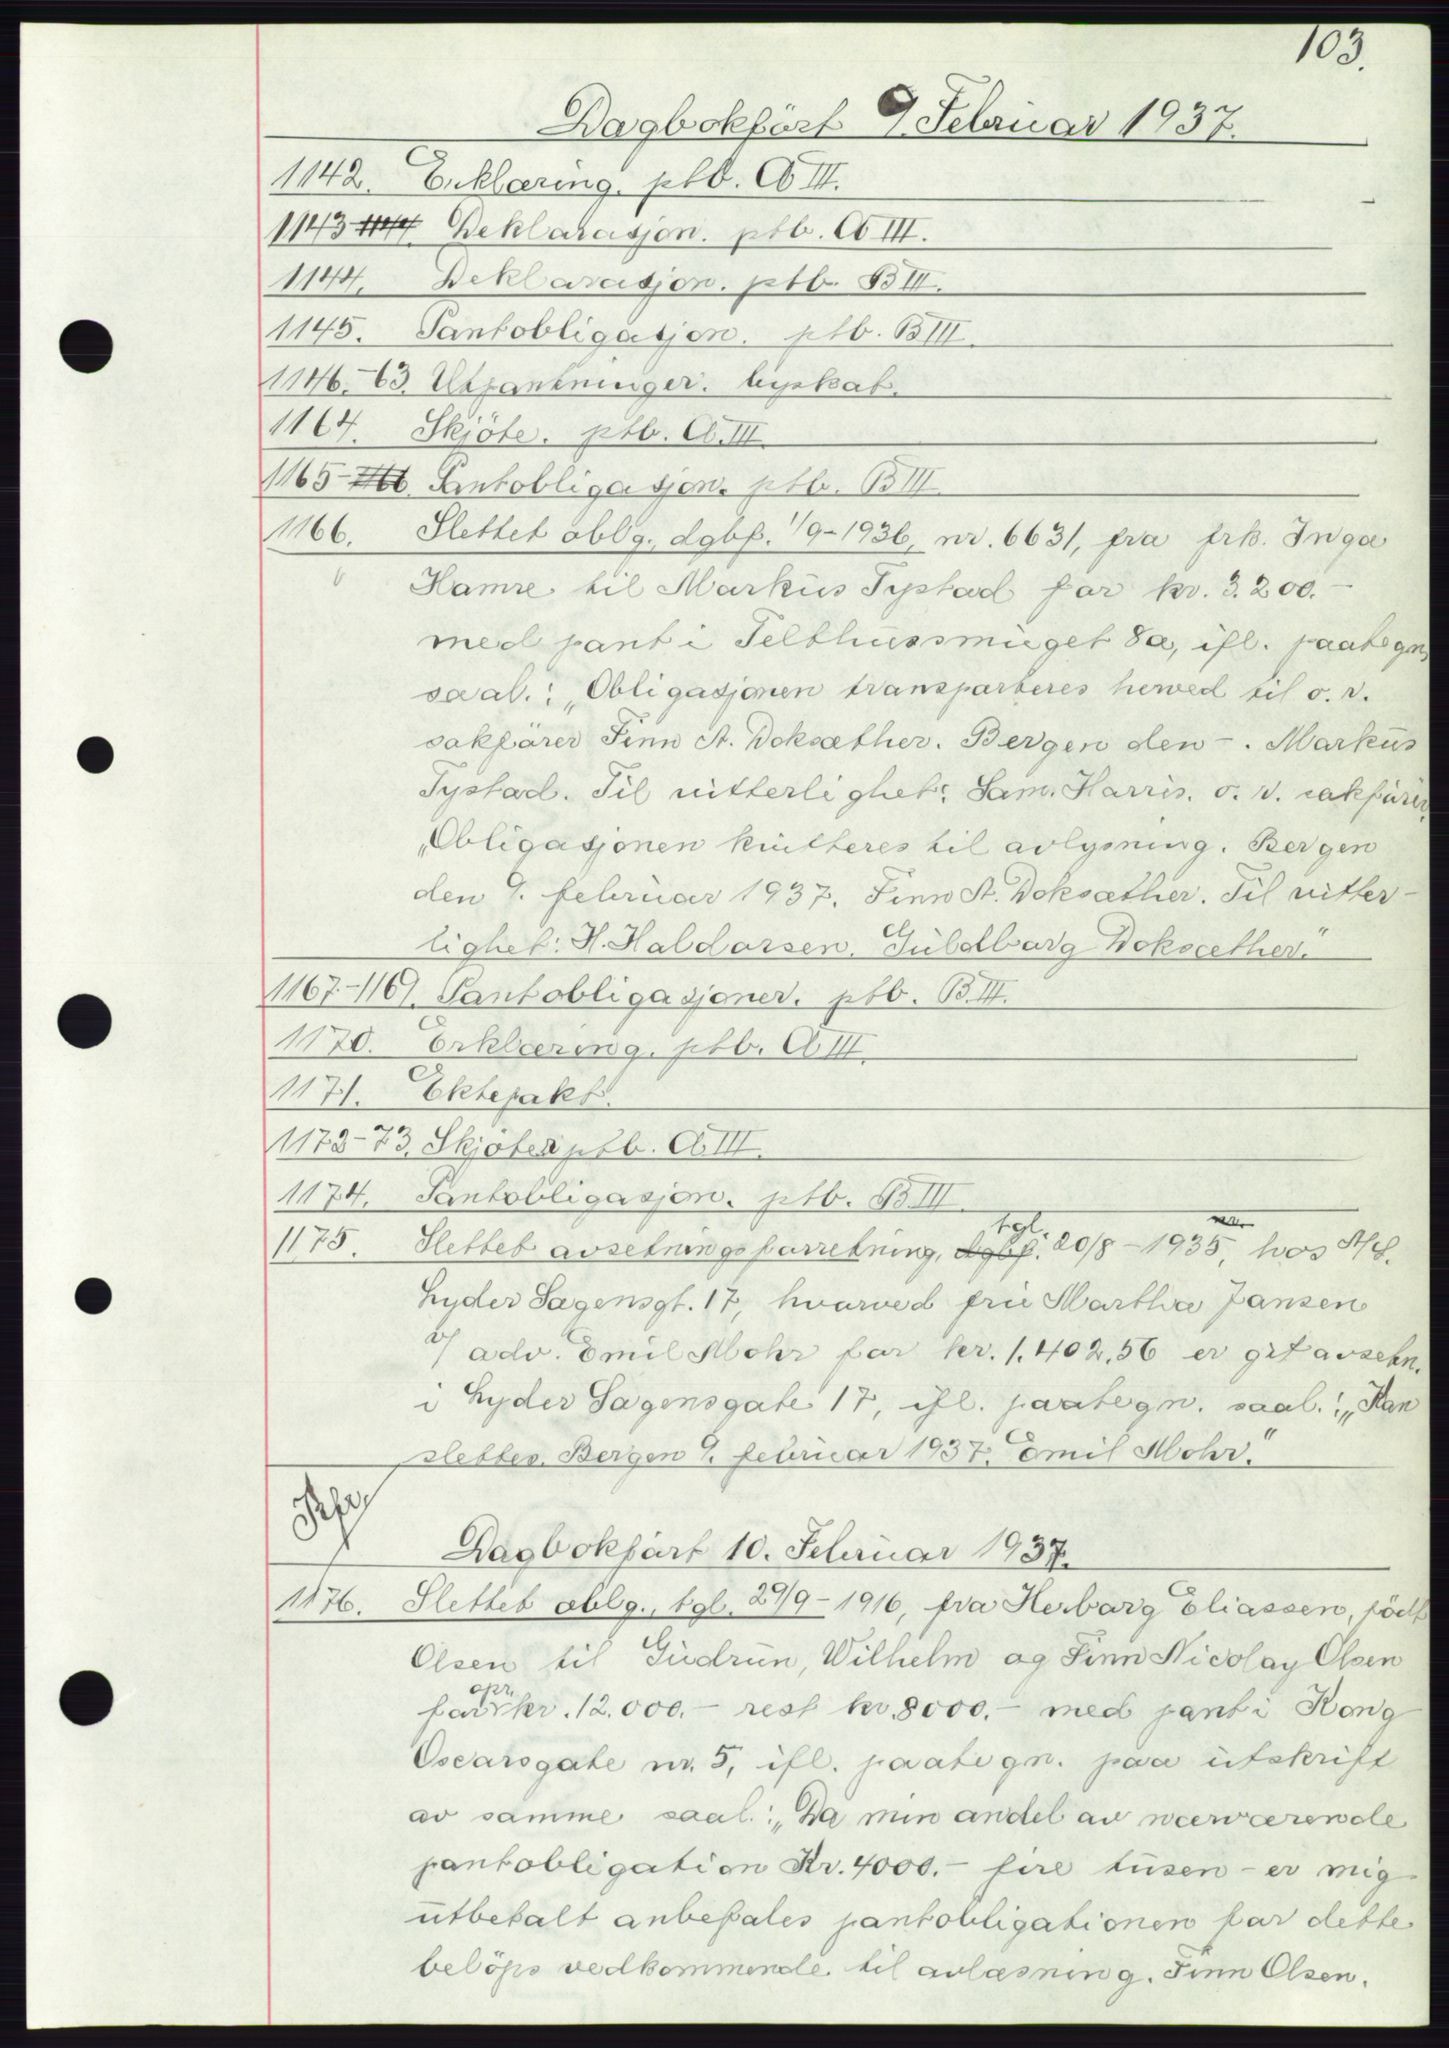 103.
Dagbokført 9. Februar 1937.
1142. Erklæring. ptb. A III.
1143 1144. Deklarasjon. ptb. A III.
1144. Deklarasjon. ptb. B III.
1145. Pantobligasjon. ptb. B III.
1146.-63. Utpantninger. byskat.
1164. Skjöte. ptb. A. III
1165-1166. Pantobligasjon. ptb. B III
1166. Slettet oblg., dgbf. 1/9-1936, nr. 6631, fra frk. Inga
Hamre til Markus Tystad for kr. 3.200.-
med pant i Telthussmuget 8a, ifl. paategn.
saal.: „Obligasjonen transporteres herved til o. r.
sakförer Finn A. Doksæther. Bergen den -. Markus
Tystad. Til vitterlighet: Sam. Harris. o. r. sakförer.
„Obligasjonen kvitteres til avlysning. Bergen
den 9. februar 1937. Finn A. Doksæther. Til vitter-
lighet: H. Haldorsen. Guldborg Doksæther."
1167-1169. Pantobligasjoner. ptb. B. III.
1170. Erklæring. ptb. A III.
1171. Ektepakt.
1172-73. Skjöter ptb. A III.
1174. Pantobligasjon. ptb. B III.
1175. Slettet avsetningsforretning, dgbf. tgl. 20/8-1935, hos A/S.
Lyder Sagensgt. 17, hvorved fru Martha Jansen
v/ adv. Emil Mohr for kr. 1.402.56 er git avsetn.
i Lyder Sagensgate 17, ifl. paategn. saal.: „Kan
slettes. Bergen 9. februar 1937. Emil Mohr."
Dagbokført 10. Februar 1937.
1176. Slettet oblg., tgl. 29/9-1916, fra Herborg Eliassen, född
Olsen til Gudrun, Wilhelm og Finn Nicolay Olsen
for opr. kr. 12.000.- rest kr. 8000.- med pant i Kong
Oscarsgate nr. 5, ifl. paategn. paa utskrift
av samme saal.: „Da min andel av nærværende
pantobligation Kr. 4000.- fire tusen - er mig
utbetalt anbefales pantobligationen for dette
belöps vedkommende til avlæsning. Finn Olsen.